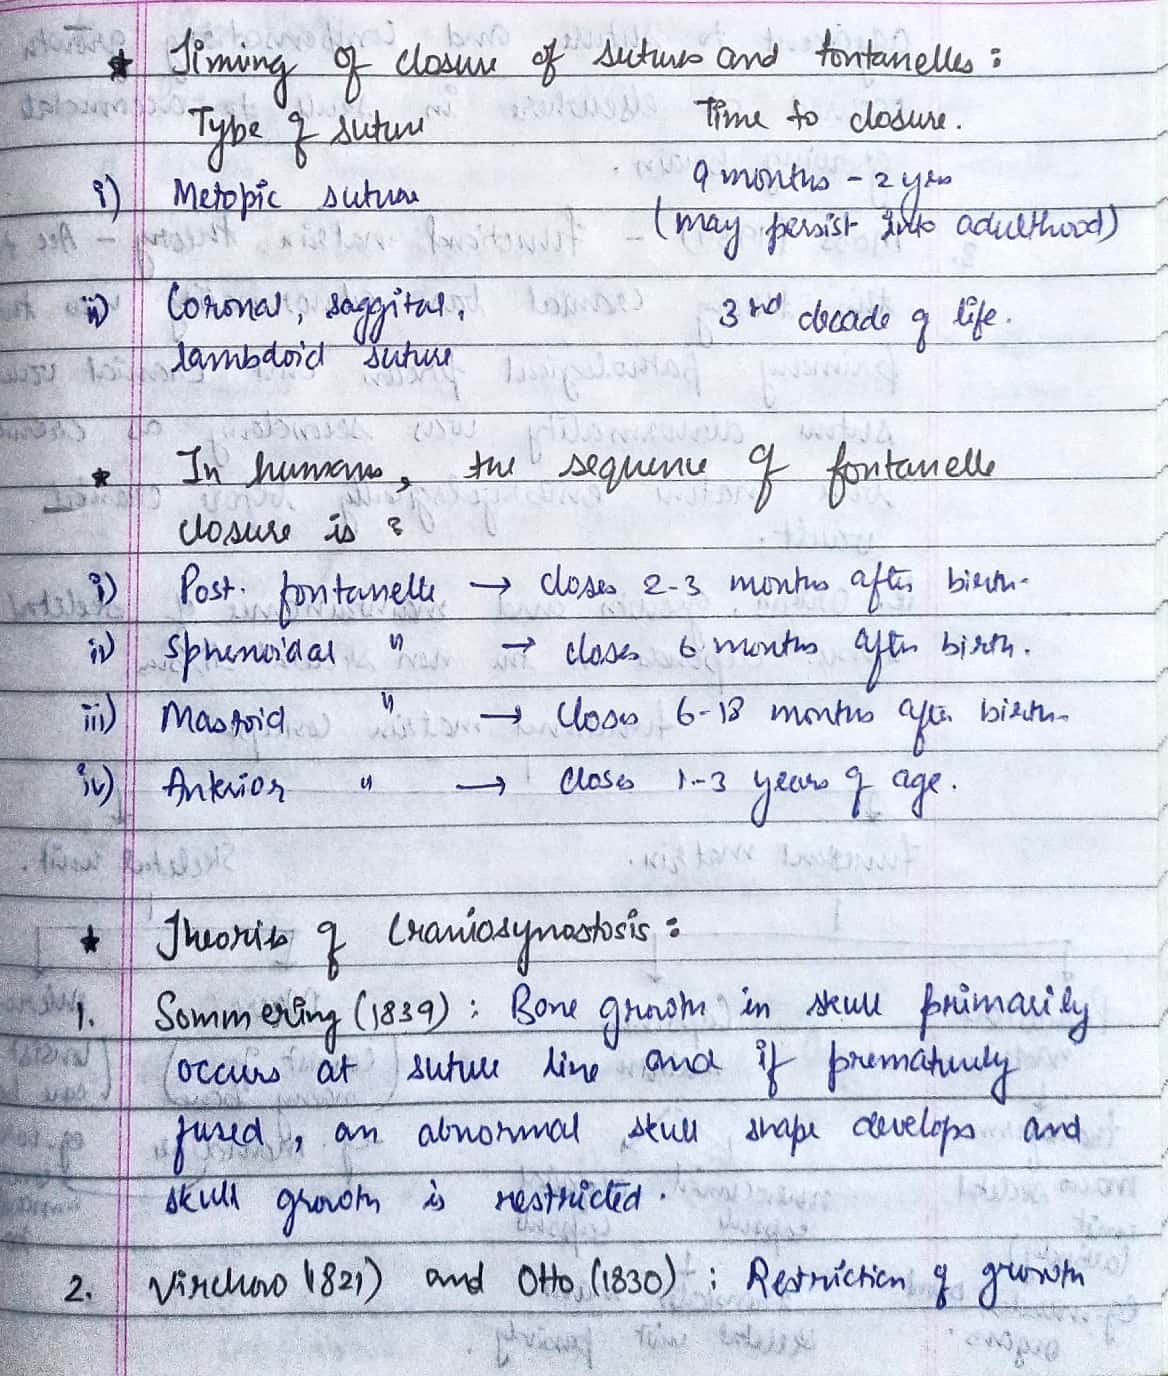 ★ Timing of closure of sutures and fontanelles :
Type of suture Time to closure.
i) Metopic suture 9 months - 2 yrs
(may persist into adulthood)
ii) Coronal, saggital, 3rd decade of life.
lambdoid suture
★ In humans, the sequence of fontanelle
closure is :
i) Post. fontanelle → closes 2-3 months after birth.
ii) Sphenoidal " → closes 6 months after birth.
iii) Mastoid " → closes 6-18 months after birth.
iv) Anterior " → closes 1-3 years of age.
★ Theories of Craniosynostosis :
1. Sommering (1839) : Bone growth in skull primarily
occurs at suture line and if prematurely
fused, an abnormal skull shape develops and
skull growth is restricted.
2. Virchow (1821) and Otto (1830) : Restriction of growth